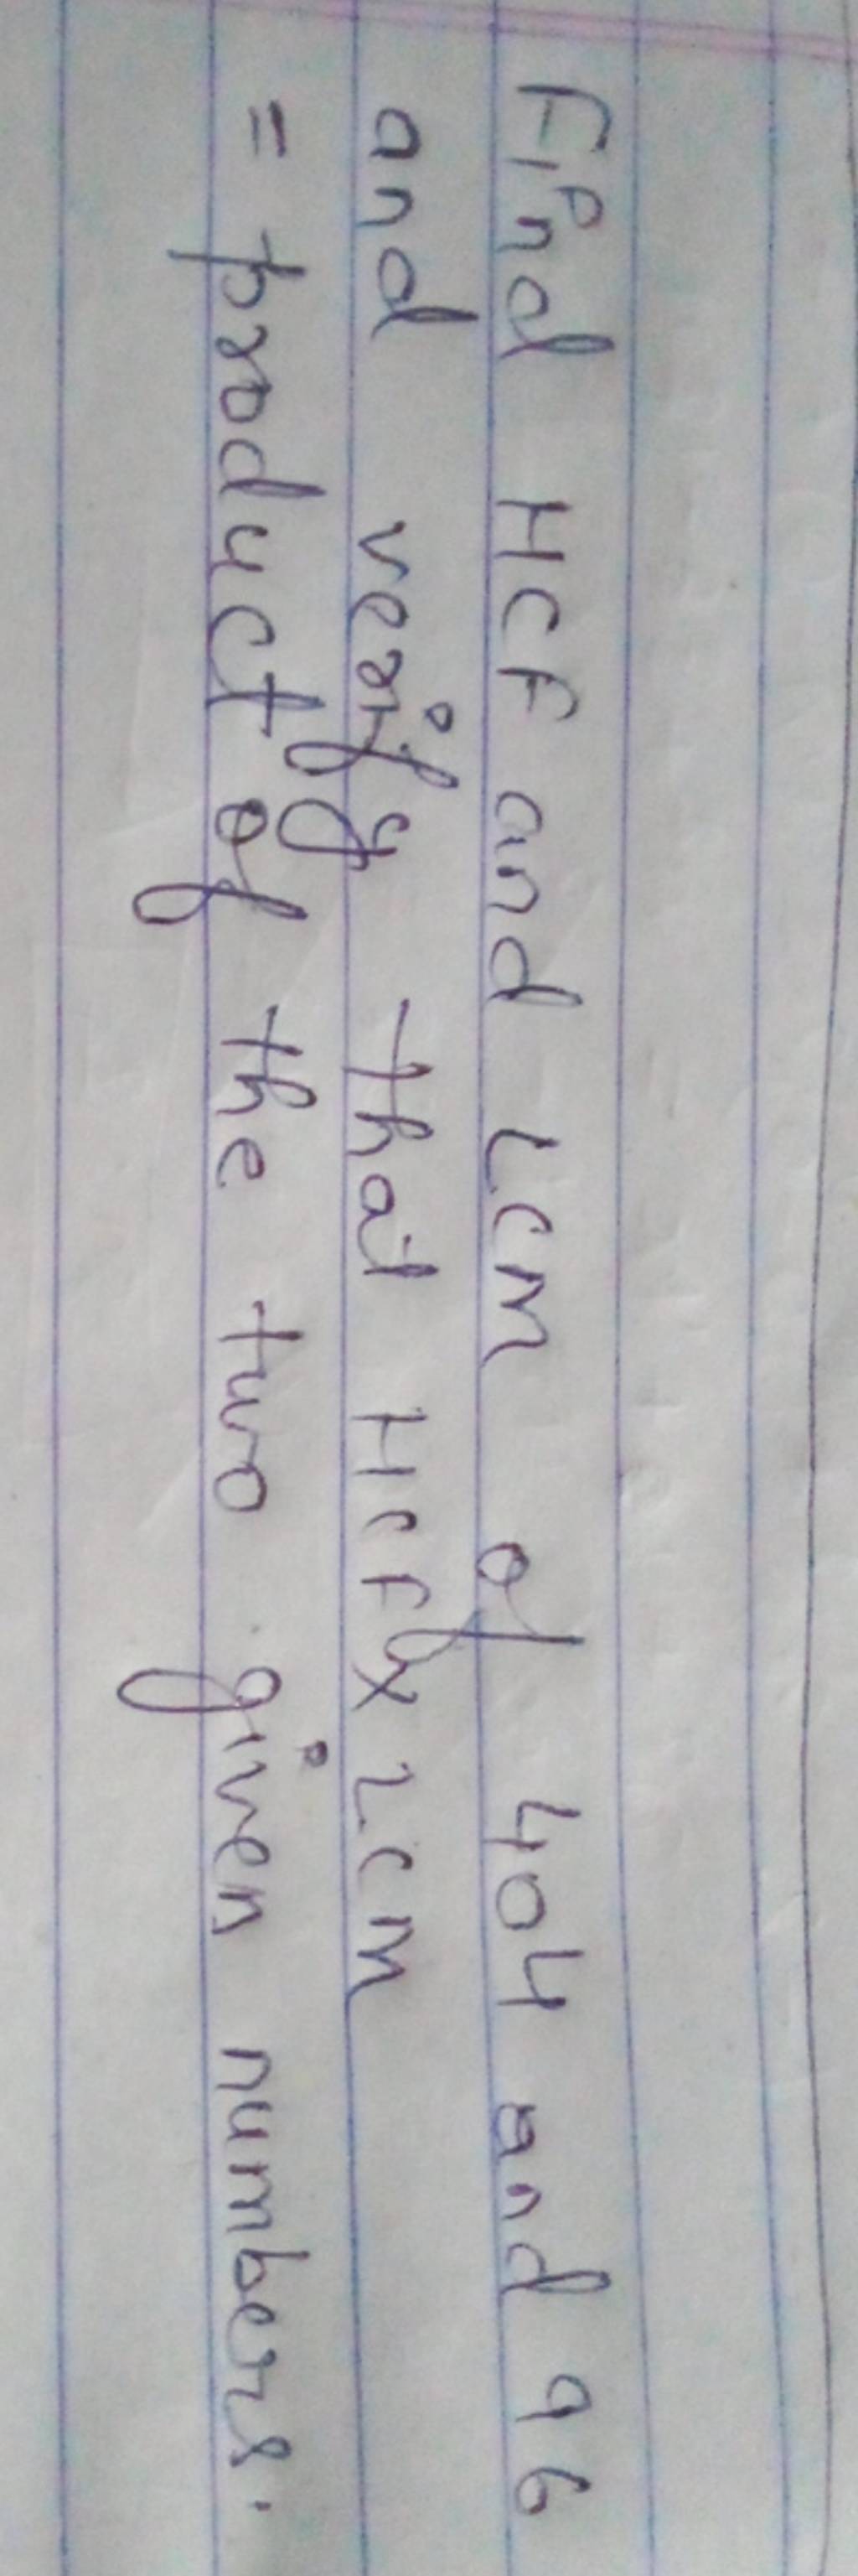 Find HCF and LCM of 404 and 96
and verify that HCF x LCM
= product of the two given numbers.